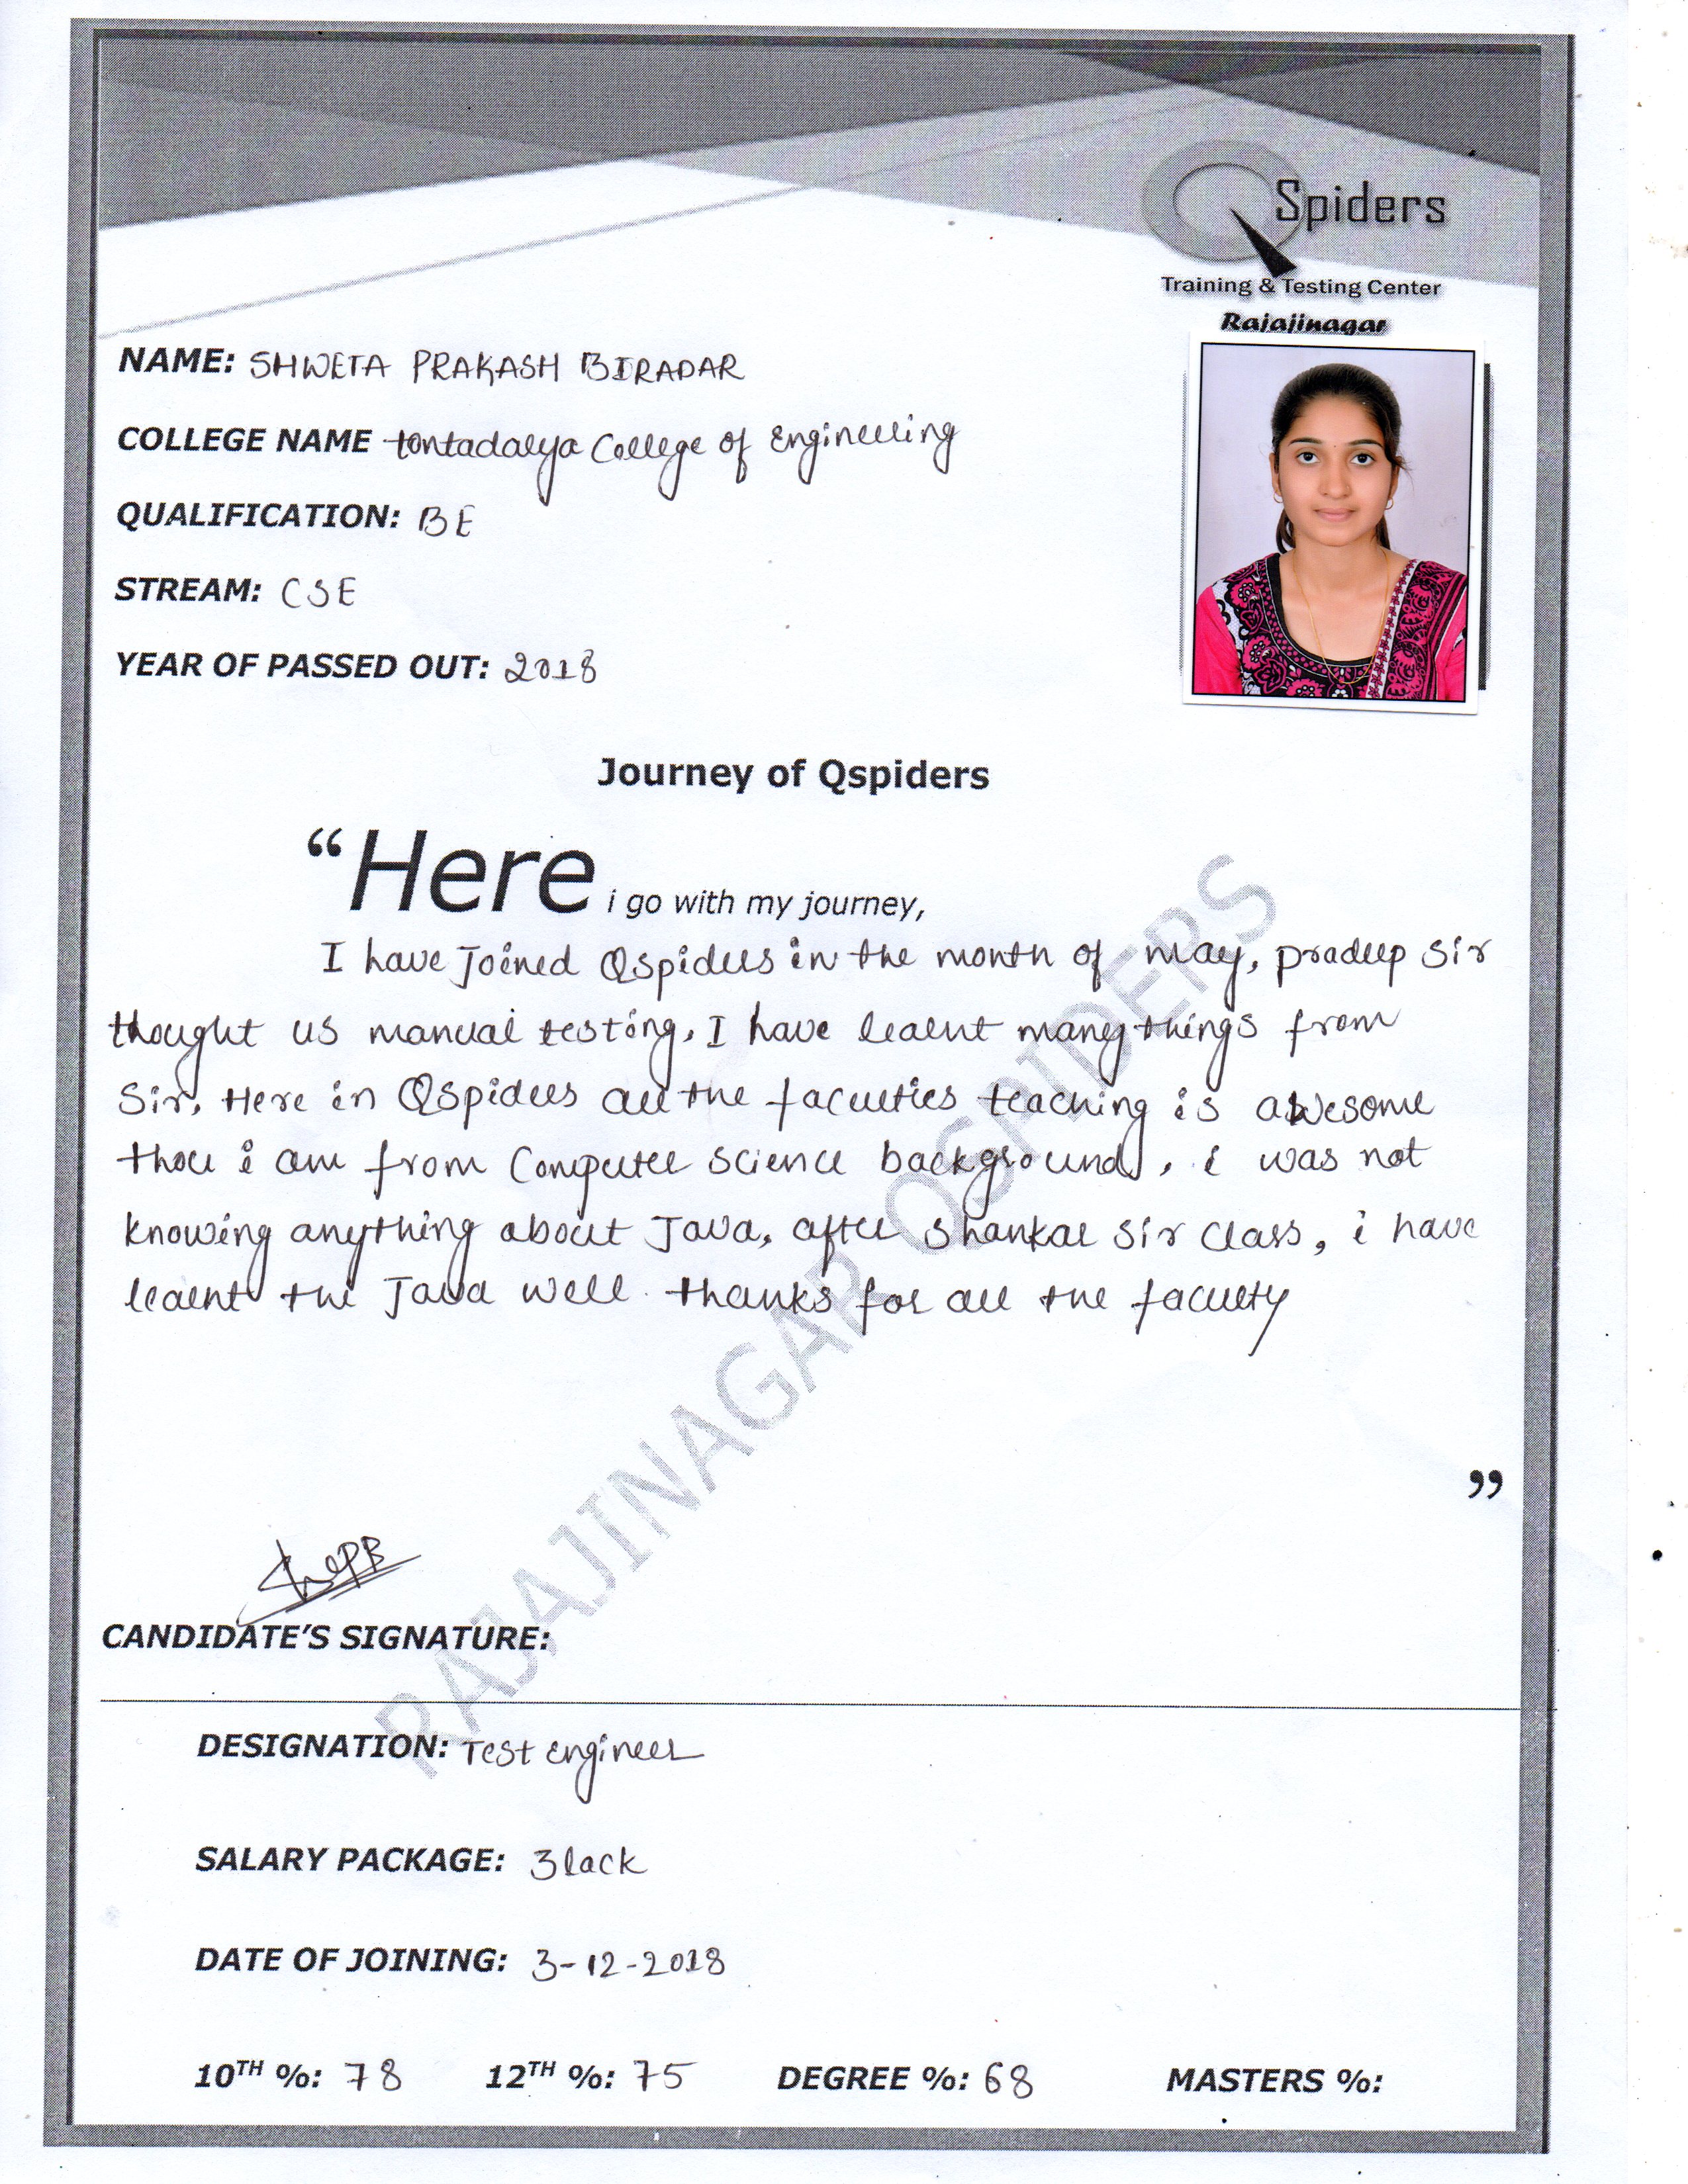 QSpiders
Training & Testing Center
Rajajinagar
NAME: SHWETA PRAKASH BIRADAR
COLLEGE NAME tontadarya College of Engineering
QUALIFICATION: BE
STREAM: CSE
YEAR OF PASSED OUT: 2018
Journey of Qspiders
“Here i go with my journey,
I have Joined Qspiders in the month of may, pradeep Sir
thought us manual testing. I have learnt many things from
Sir. Here in Qspiders all the faculties teaching is awesome
thou i am from Computer Science background, i was not
knowing anything about Java, after Shankar Sir Class, i have
learnt the Java well. thanks for all the faculty
”
RAJAJINAGAR QSPIDERS
ShwePB
CANDIDATE’S SIGNATURE:
DESIGNATION: Test engineer
SALARY PACKAGE: 3 lack
DATE OF JOINING: 3-12-2018
10TH %: 78 12TH %: 75 DEGREE %: 68 MASTERS %: